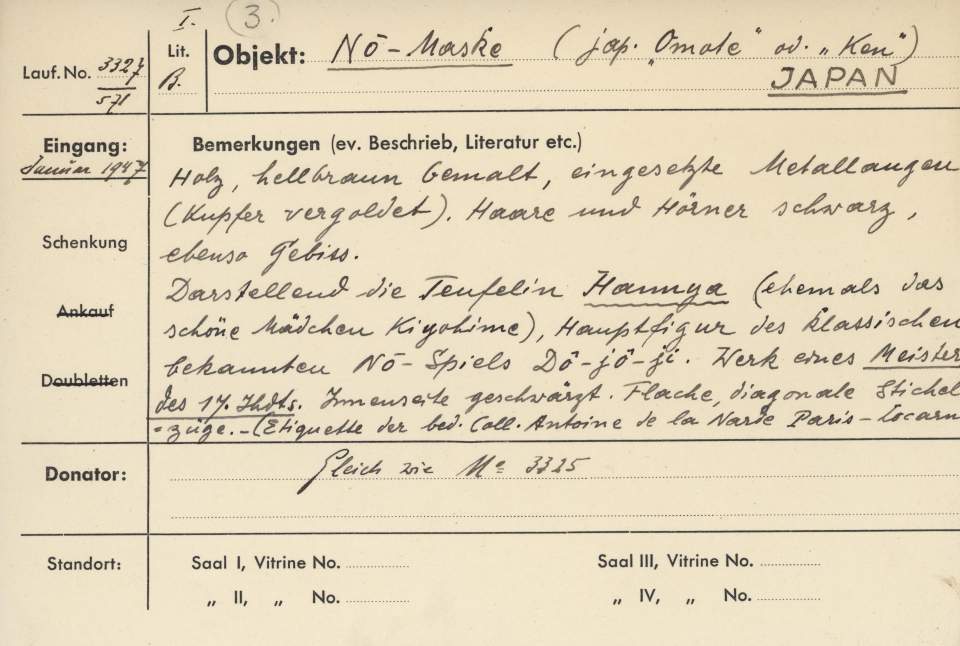 I. (3.)
Lauf. No. 3327
571
Lit.
B.
Objekt: Nō-Maske (jap. "Omote" od. „Ken")
JAPAN
Eingang:
Januar 1947
Bemerkungen (ev. Beschrieb, Literatur etc.)
Holz, hellbraun bemalt, eingesetzte Metallaugen
(Kupfer vergoldet). Haare und Hörner schwarz,
ebenso Gebiss.
Darstellend die Teufelin Hannya (ehemals das
schöne Mädchen Kiyohime), Hauptfigur des klassischen
bekannten Nō-Spiels Dō-jō-ji. Werk eines Meister
des 17. Jhdts. Innenseite geschwärzt. Flache, diagonale Stichel
=züge. – (Etiquette der bed. Coll. Antoine de la Narde Paris – Locarn
Schenkung
Ankauf
Doubletten
Donator: Gleich wie No 3325
Standort:
Saal I, Vitrine No.
Saal III, Vitrine No.
„ II, „ No.
„ IV, „ No.